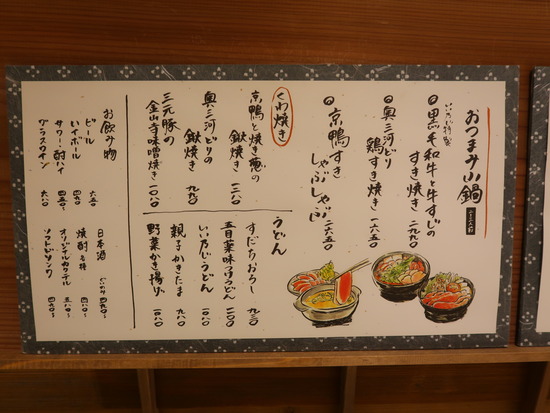 おつまみ小鍋
いいの特製
黒毛和牛と牛すじの
すき焼き 一九九〇
奥三河どり
鶏すき焼き 一六五〇
京鴨すき
しゃぶしゃぶ 二六五〇
くわ焼き
京鴨と焼き葱の
鍬焼き 一二八〇
奥三河どりの
鍬焼き 九九〇
三元豚の
金山寺味噌焼き 一〇八〇
うどん
すだちおろし 九三〇
五目薬味つけうどん 一一〇〇
いい乃じうどん 一〇八〇
親子かきたま 九八〇
野菜かき揚げ 一〇八〇
お飲み物
ビール 六五〇
ハイボール 四九〇
サワー・酎ハイ 四五〇〜
グラスワイン 六八〇
日本酒 四九〇〜
焼酎各種 四八〇〜
オリジナルカクテル 五八〇〜
ソフトドリンク 四五〇〜